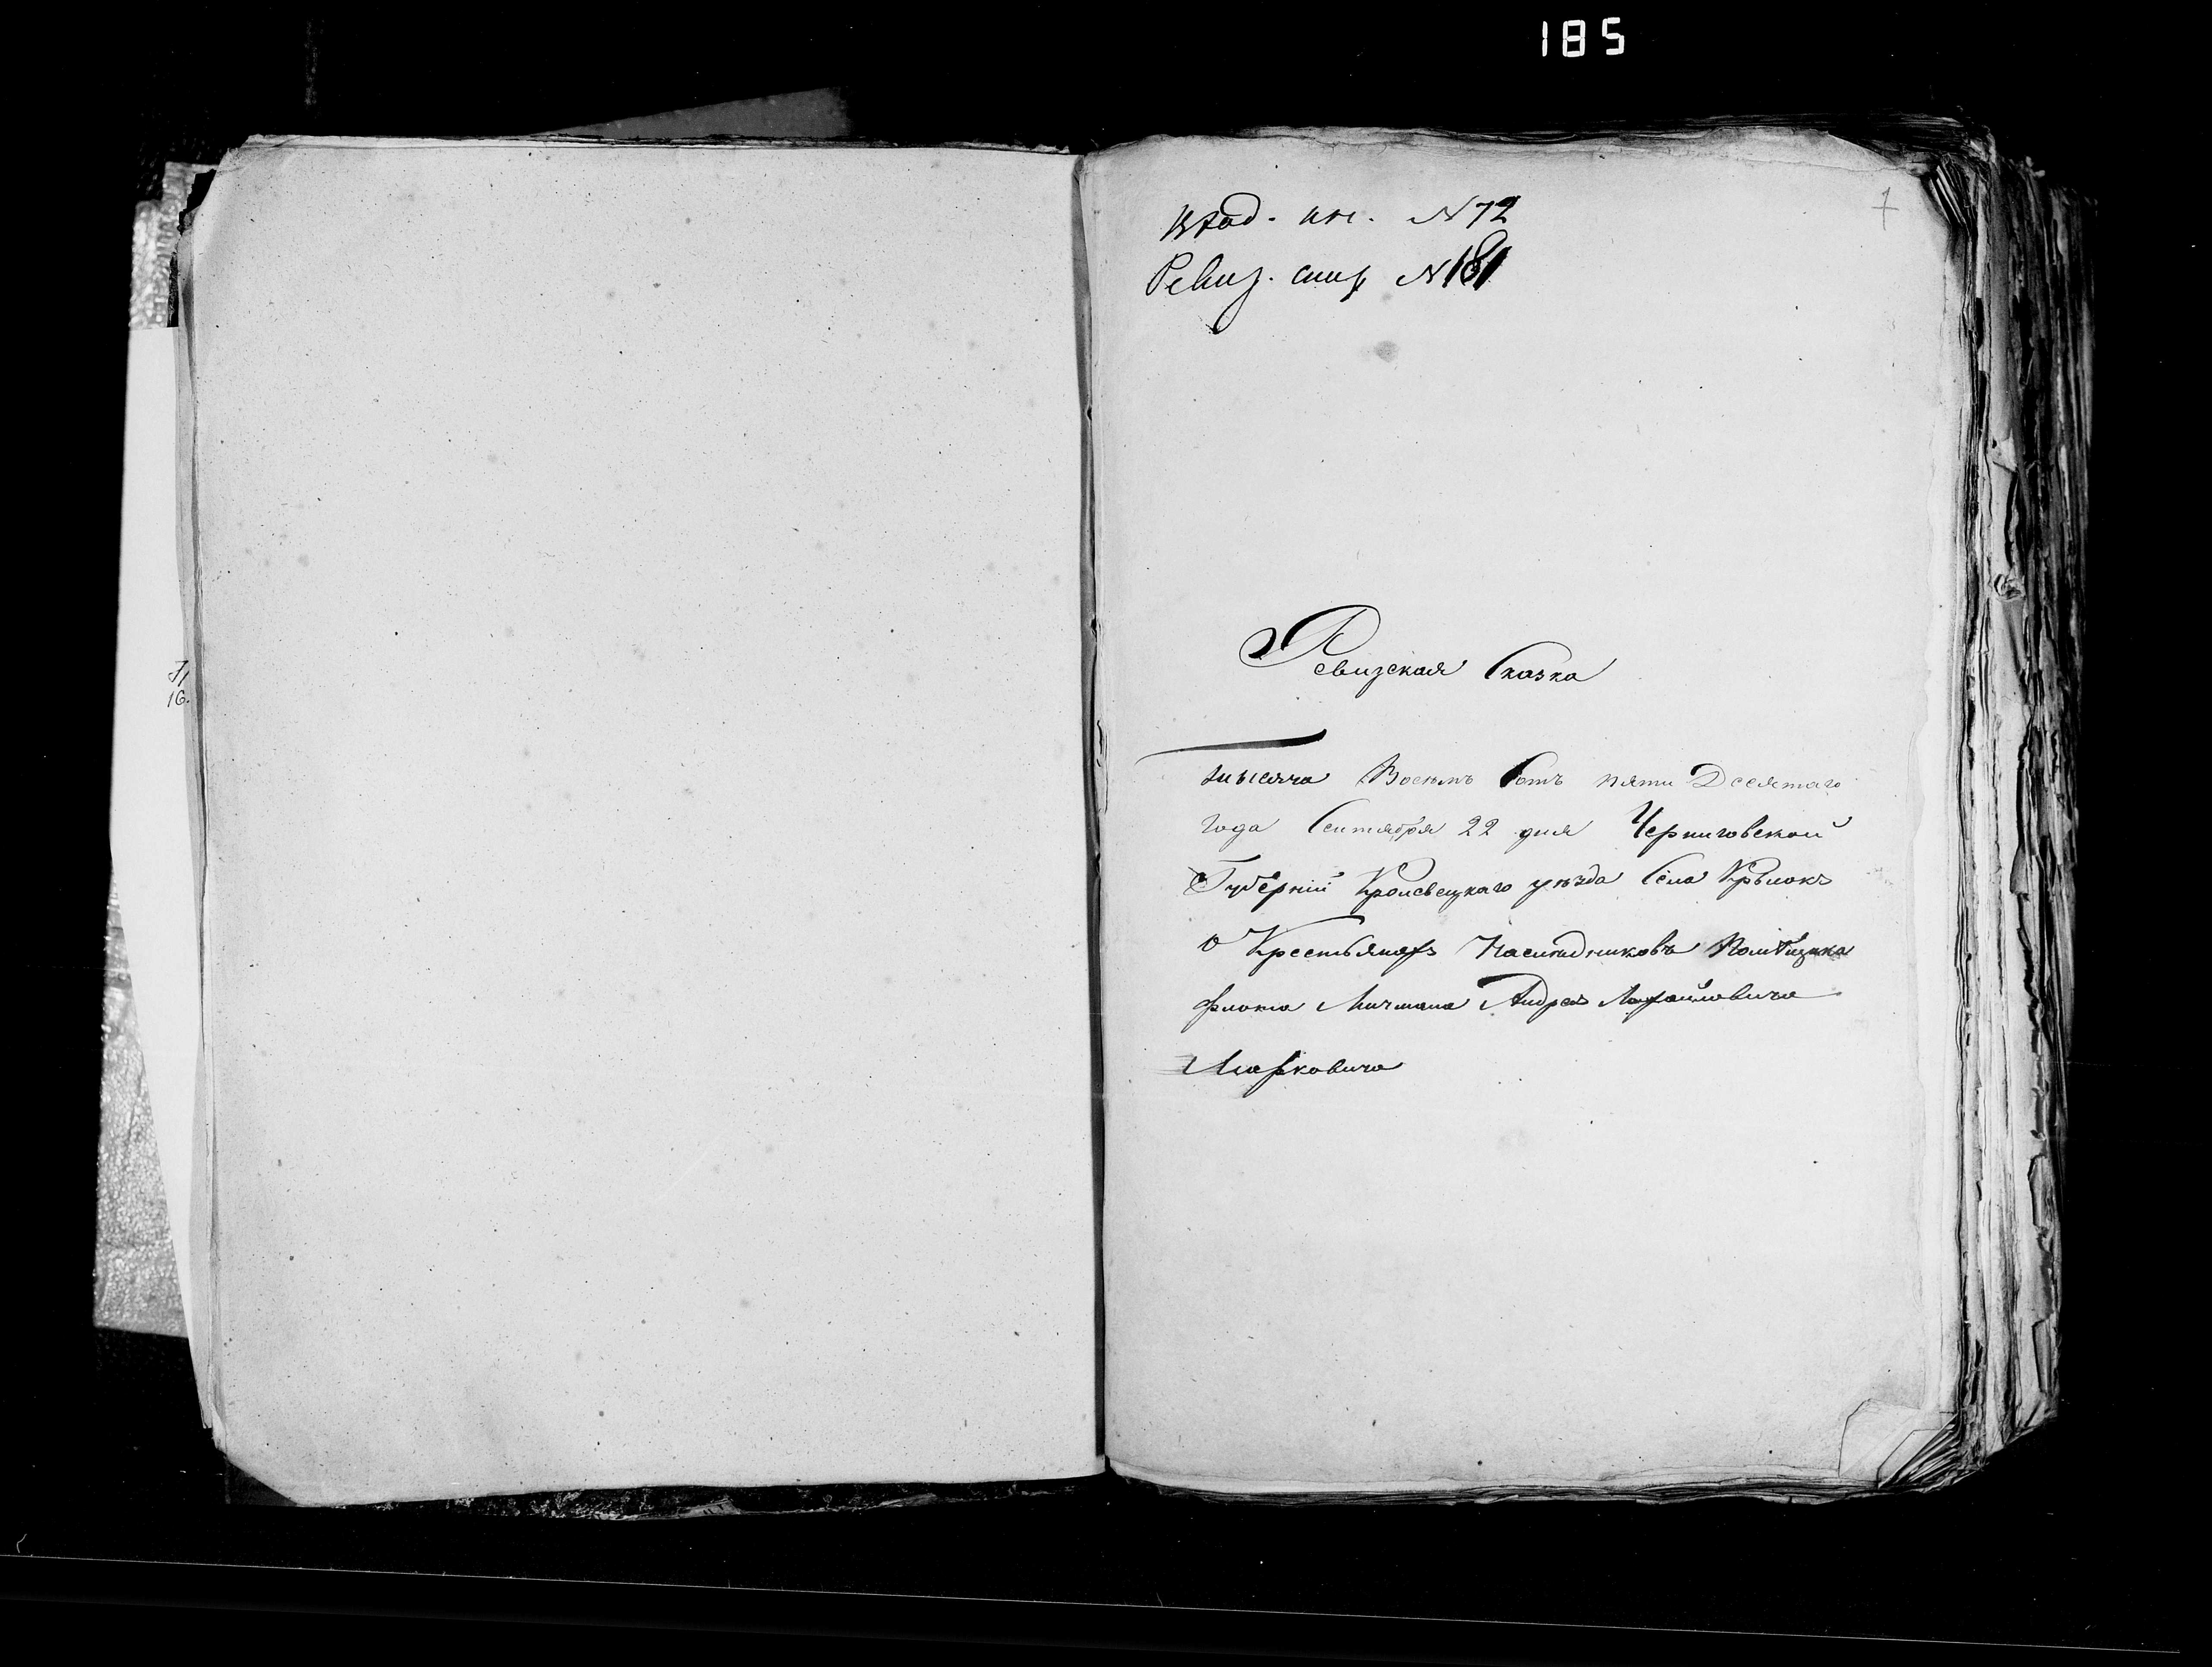 185
7
Вход. кн. N 72
Ревиз. спис N 181
71
16.
Ревизская Сказка
тысяча Восемь Сотъ пяти Десятаго
года Сентября 22 дня Черниговской
Губерніи Кролевецкаго уѣзда Села
о Крестьянахъ Наслѣдниковъ Помѣщика
флота Мичмана Андрея Михайловича
Марковича